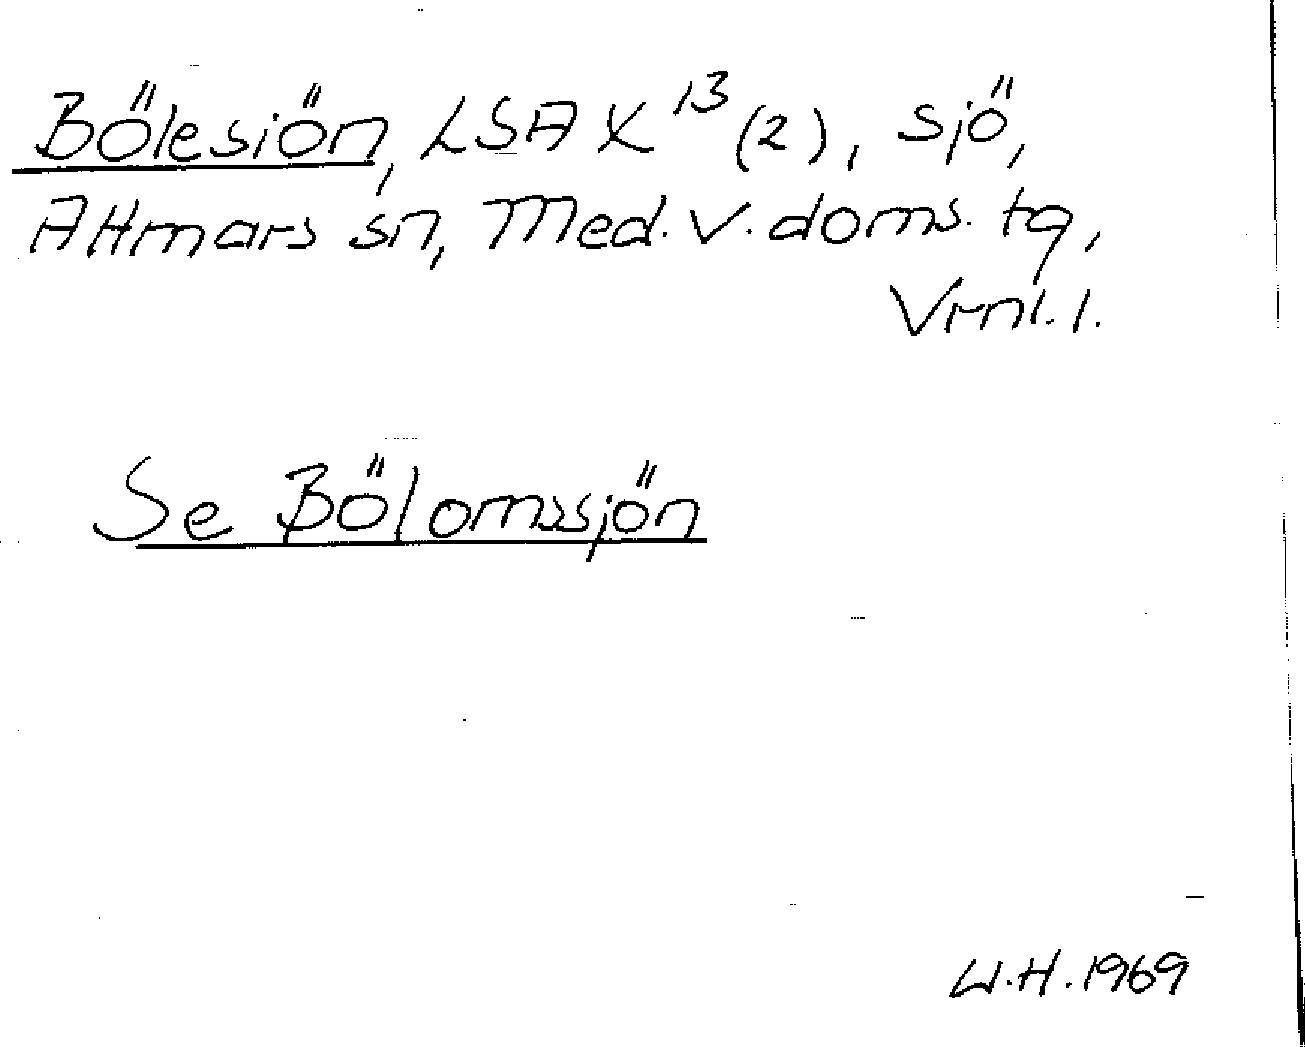 Bölesiön, LSA X 13 (2), sjö,
Attmars sn, Med. v. doms. tg,
Vrnl. l.
Se Bölomssjön
W.H. 1969